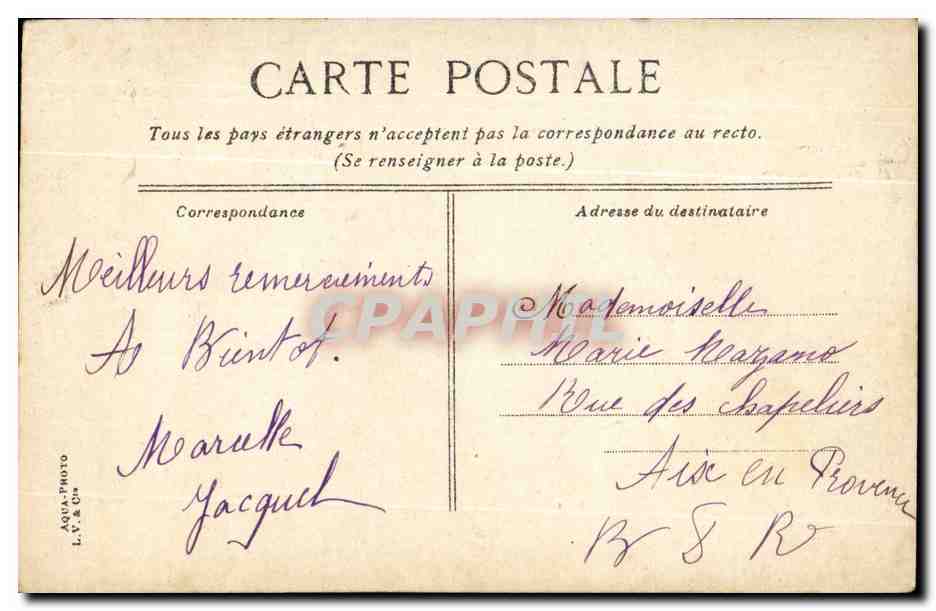 CARTE POSTALE
Tous les pays étrangers n'acceptent pas la correspondance au recto.
(Se renseigner à la poste.)
Correspondance
Meilleurs remerciements
A Bientot.
Marcelle
Jacquel
Adresse du destinataire
Mademoiselle
Marie Mazamo
Rue des Chapeliers
Aix en Provence
B D R
AQUA-PHOTO
L.V. & Cie
CPAPHIL